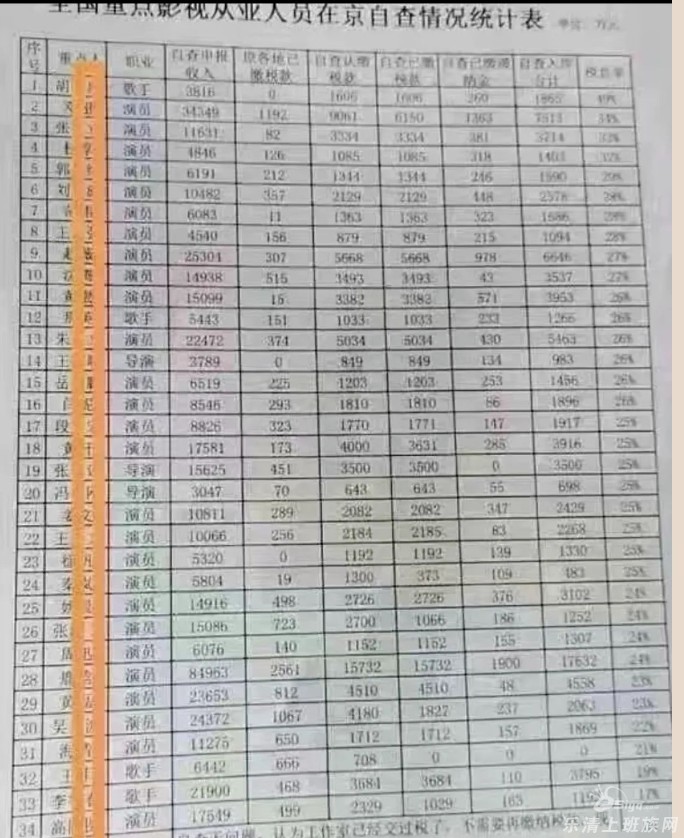 全国重点影视从业人员在京自查情况统计表 单位：万元
序号 重点人 职业 自查申报收入 原各地已缴税款 自查认缴税款 自查已缴税款 自查已缴滞纳金 自查入库合计 税负率
1 胡 歌手 3816 0 1606 1606 260 1865 49%
2 邓 演员 34349 1192 9061 6150 1363 7513 34%
3 张 演员 11631 82 3334 3334 381 3714 33%
4 杜 演员 4846 126 1085 1085 318 1403 32%
5 郭 演员 6191 212 1344 1344 246 1590 29%
6 刘 演员 10482 357 2129 2129 448 2578 28%
7 演员 6083 11 1363 1363 323 1686 28%
8 王 演员 4540 156 879 879 215 1094 28%
9 赵 演员 25304 307 5668 5668 978 6646 27%
10 演员 14938 515 3493 3493 43 3537 27%
11 黄 演员 15099 15 3382 3382 571 3953 26%
12 歌手 5443 151 1033 1033 233 1266 26%
13 朱 演员 22472 374 5034 5034 430 5463 26%
14 王 导演 3789 0 849 849 134 983 26%
15 岳 演员 6519 225 1203 1203 253 1456 26%
16 闫 妮 演员 8546 293 1810 1810 86 1896 26%
17 段 演员 8826 323 1770 1771 147 1917 25%
18 黄 演员 17581 173 4000 3631 285 3916 25%
19 张 导演 15625 451 3500 3500 0 3500 25%
20 冯 导演 3047 70 643 643 55 698 25%
21 姜 文 演员 10811 289 2082 2082 347 2429 25%
22 王 演员 10066 256 2184 2185 83 2268 25%
23 徐 演员 5320 0 1192 1192 139 1330 25%
24 秦 岚 演员 5804 19 1300 373 109 483 25%
25 姚 演员 14916 498 2726 2726 376 3102 24%
26 张 演员 15086 723 2700 1066 186 1252 24%
27 周 迅 演员 6076 140 1152 1152 155 1307 24%
28 演员 84963 2561 15732 15732 1900 17632 24%
29 黄 演员 23653 812 4510 4510 48 4558 23%
30 吴 演员 24372 1067 4180 1827 237 2063 23%
31 演员 11275 650 1712 1712 157 1869 22%
32 王 歌手 6442 666 708 0 0 0 21%
33 李 演员 21900 468 3684 3684 110 3795 19%
34 高 演员 17549 499 2329 1029 163 17%
自查无问题，认为工作室已经交过税了，不需要再缴纳税
乐清上班族网